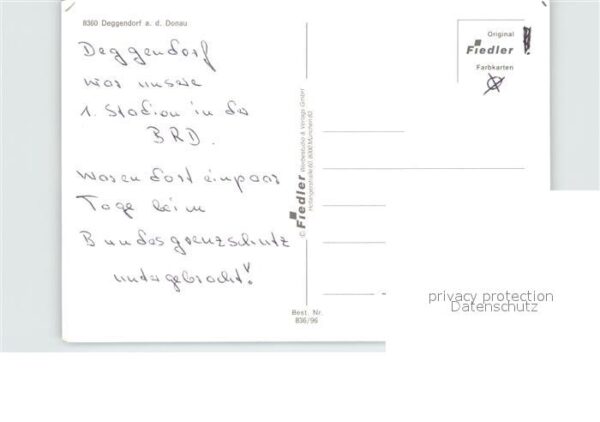 8360 Deggendorf a. d. Donau
Deggendorf
war unsere
1. Stadion in der
BRD.
waren dort einpaar
Tage beim
Bundesgrenzschutz
untergebracht!
Original
Fiedler
Farbkarten
© Fiedler Werbestudio & Verlags GmbH
8000 München 60
Best. Nr.
836/96
privacy protection
Datenschutz